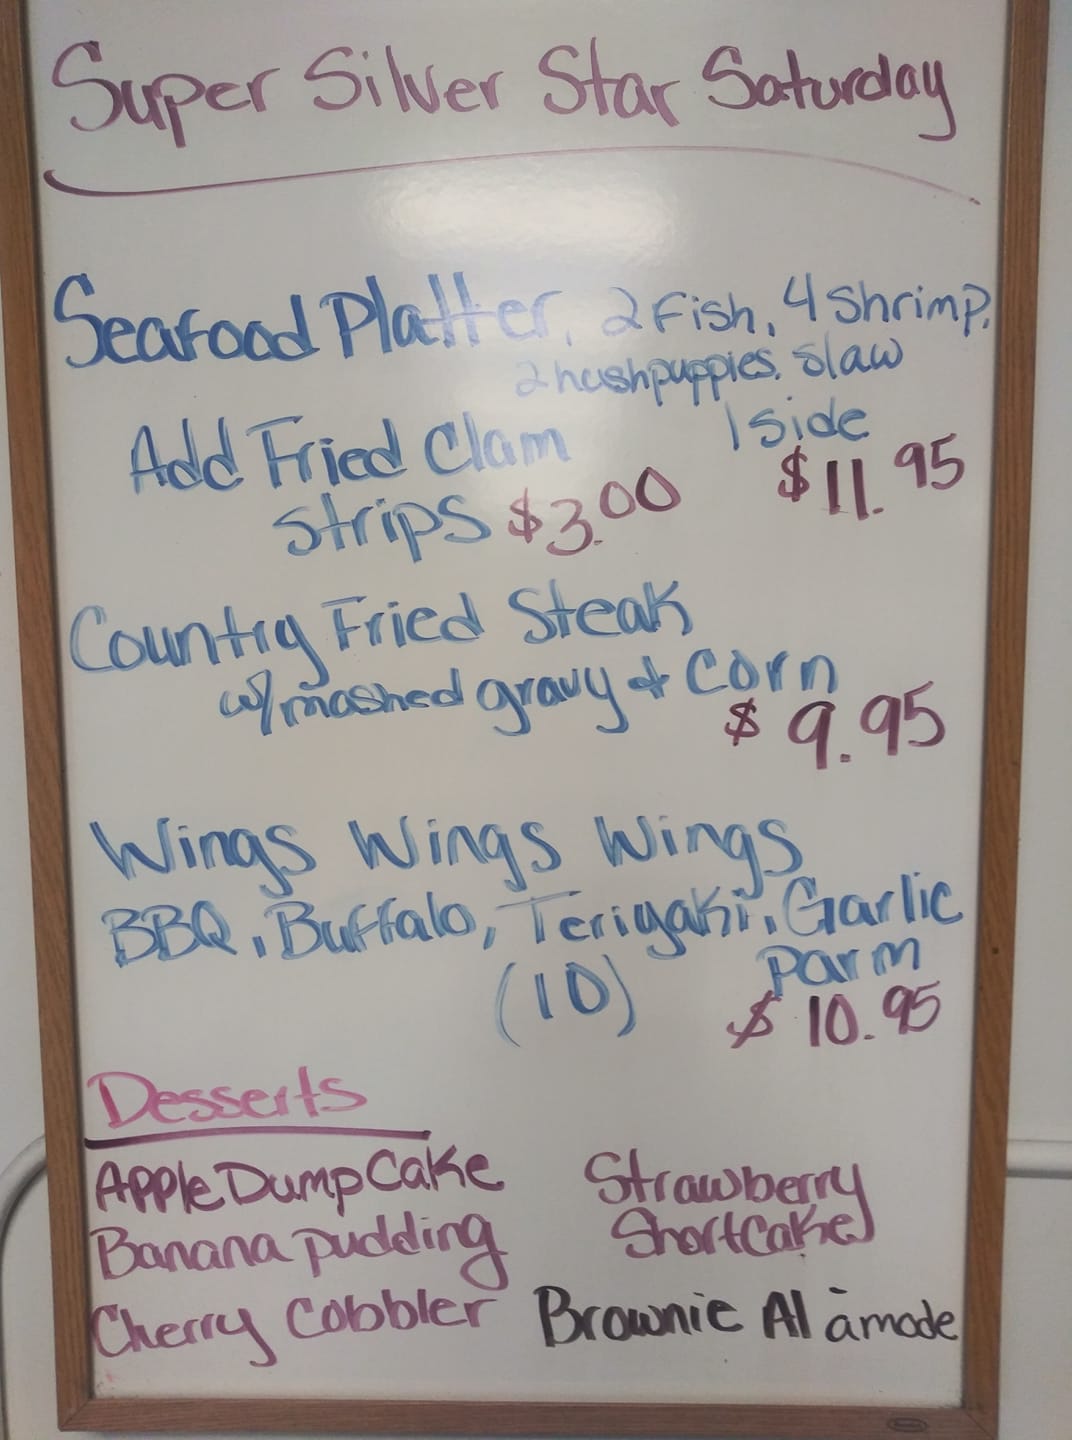 Super Silver Star Saturday
Seafood Platter, 2 Fish, 4 Shrimp,
2 hushpuppies, slaw
1 side
$11.95
Add Fried Clam
strips $3.00
Country Fried Steak
w/mashed gravy & Corn
$9.95
Wings Wings Wings
BBQ, Buffalo, Teriyaki, Garlic
Parm
(10)
$10.95
Desserts
Apple Dump Cake
Banana pudding
Cherry Cobbler
Strawberry
Shortcake
Brownie Al àmode